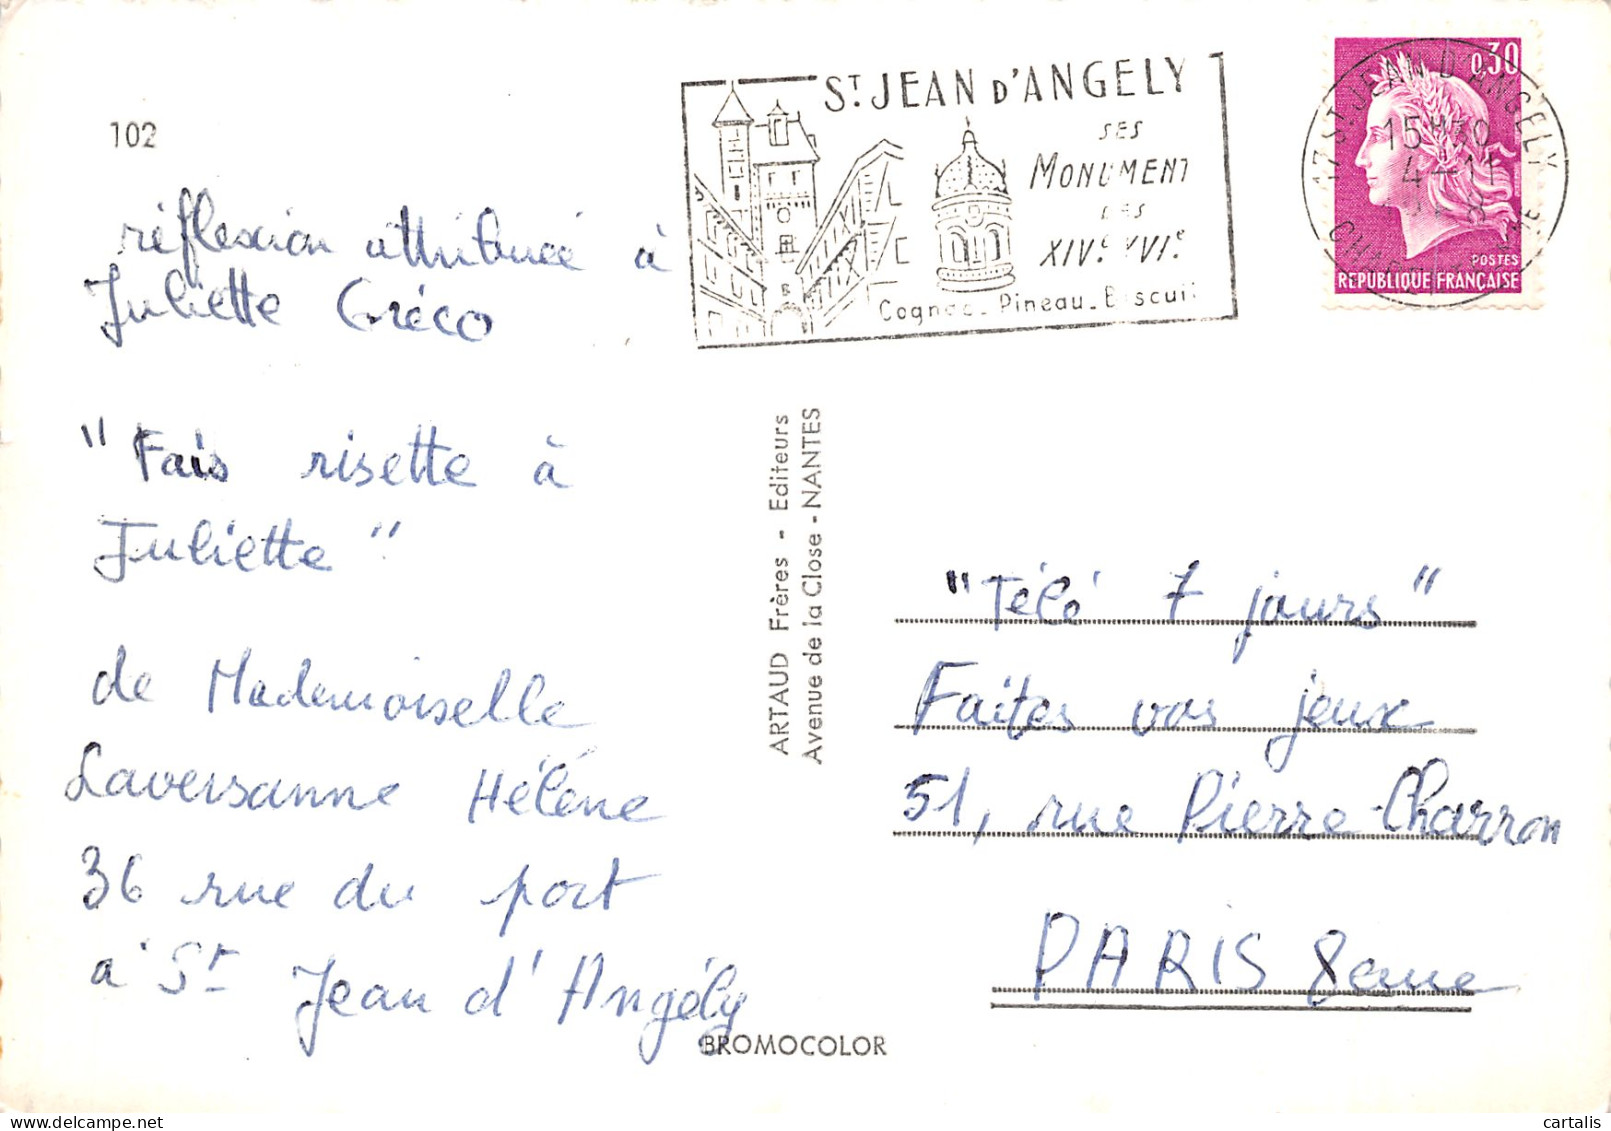 102
réflexion attribuée à
Juliette Gréco
"Fais risette à
Juliette"
de Mademoiselle
Laversanne Hélène
36 rue du port
à St Jean d'Angély
ST JEAN D'ANGELY
SES
MONUMENT
DES
XIVe XVIe
Cognac_Pineau_Biscuit
17 ST JEAN D'ANGELY
15H30
4-11
0,30
POSTES
REPUBLIQUE FRANÇAISE
ARTAUD Frères - Editeurs
Avenue de la Close - NANTES
"Télé 7 jours"
Faites vos jeux
51, rue Pierre-Charron
PARIS 8eme
BROMOCOLOR
cartalis